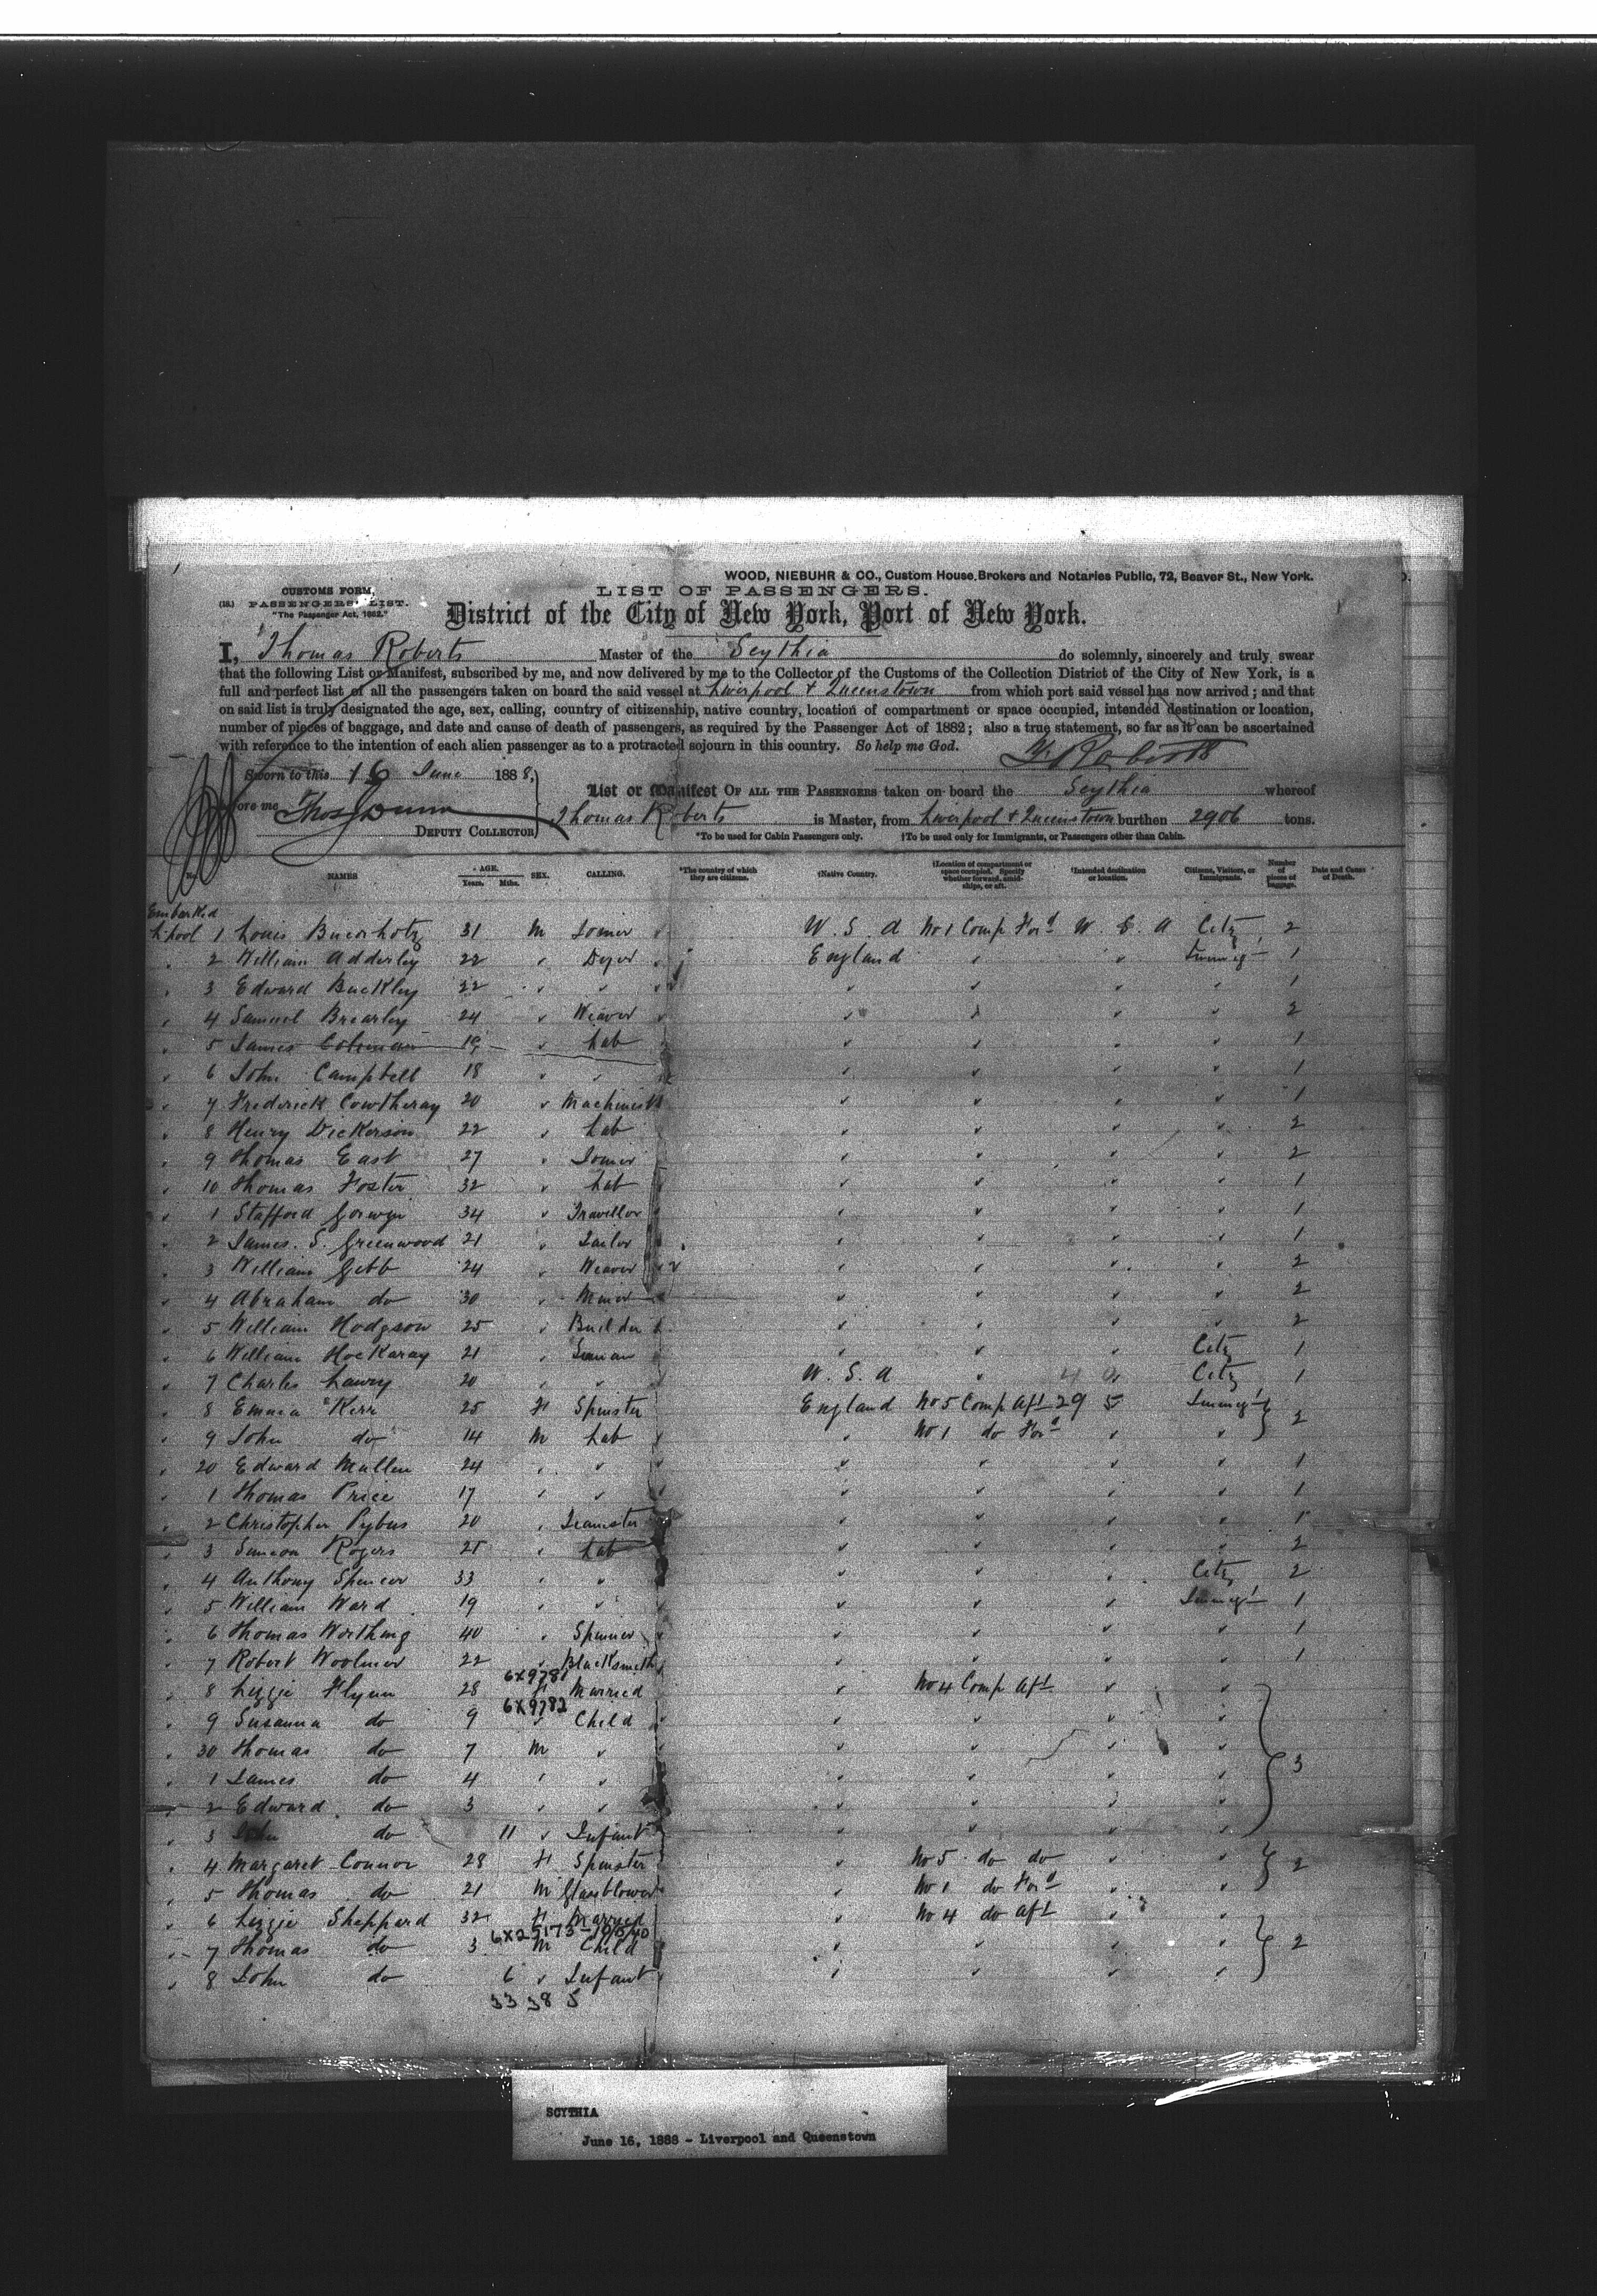 WOOD, NIEBUHR & CO., Custom House Brokers and Notaries Public, 72, Beaver St., New York.
CUSTOMS FORM,
(18.) PASSENGERS' LIST.
"The Passenger Act, 1882."
LIST OF PASSENGERS.
District of the City of New York, Port of New York.
I, Thomas Roberts Master of the Scythia do solemnly, sincerely and truly swear
that the following List or Manifest, subscribed by me, and now delivered by me to the Collector of the Customs of the Collection District of the City of New York, is a
full and perfect list of all the passengers taken on board the said vessel at Liverpool & Queenstown from which port said vessel has now arrived; and that
on said list is truly designated the age, sex, calling, country of citizenship, native country, location of compartment or space occupied, intended destination or location,
number of pieces of baggage, and date and cause of death of passengers, as required by the Passenger Act of 1882; also a true statement, so far as it can be ascertained
with reference to the intention of each alien passenger as to a protracted sojourn in this country. So help me God.
Roberts
Sworn to this 16 June 1888,
before me Thos Dunn
DEPUTY COLLECTOR
List or Manifest OF ALL THE PASSENGERS taken on board the Scythia whereof
Thomas Roberts is Master, from Liverpool & Queenstown burthen 2906 tons.
*To be used for Cabin Passengers only. †To be used only for Immigrants, or Passengers other than Cabin.
No. NAMES AGE. Years. Mths. SEX. CALLING. *The country of which they are citizens. †Native Country. †Location of compartment or space occupied. Specify whether forward, amidships, or aft. †Intended destination or location. Citizens, Visitors, or Immigrants. Number of pieces of baggage. Date and Cause of Death.
Embarked
L'pool 1 Louis 31 M U.S.A No 1 Comp For'd U S A City 2
2 William Adderley 22 Dyer England Immig't 1
3 Edward Buckley 22 1
4 Samuel Brearley 24 Weaver 2
5 James Coleman 19 Lab 1
6 John Campbell 18 1
7 Frederick Cowtheray 20 Machinist 1
8 Henry Dickerson 22 Lab 2
9 Thomas East 27 2
10 Thomas Foster 32 Lab 1
1 Stafford 34 Traveller 1
2 James. S. Greenwood 21 Tailor 1
3 William Gibb 24 Weaver 2
4 Abraham do 30 Miner 2
5 William Hodgson 25 Builder 2
6 William Hockaray 21 City 1
7 Charles Lawry 20 U.S.A City 1
8 Emma Kerr 25 F Spinster England No 5 Comp Aft 29 5 Immig't
9 John do 14 M Lab No 1 do For'd 2
20 Edward Mullen 24 1
1 Thomas Price 17 1
2 Christopher Pybus 20 Teamster 1
3 Simeon Rogers 21 Lab 2
4 Anthony Spencer 33 City 2
5 William Ward 19 Immig't 1
6 Thomas Worthing 40 Spinner 1
7 Robert Woolmer 22 Blacksmith 1
6X9781
8 Lizzie Flynn 28 F Married No 4 Comp Aft
6X9782
9 Susanna do 9 Child
30 Thomas do 7 M
1 James do 4 3
2 Edward do 3
3 John do 11 Infant
4 Margaret Connor 28 F Spinster No 5 do do 2
5 Thomas do 21 M Glassblower No 1 do For'd
6 Lizzie Sheppard 32 F Married No 4 do Aft
7 Thomas do 3 M Child 2
8 John do 6 Infant
33 38 5
SCYTHIA
June 16, 1888 - Liverpool and Queenstown